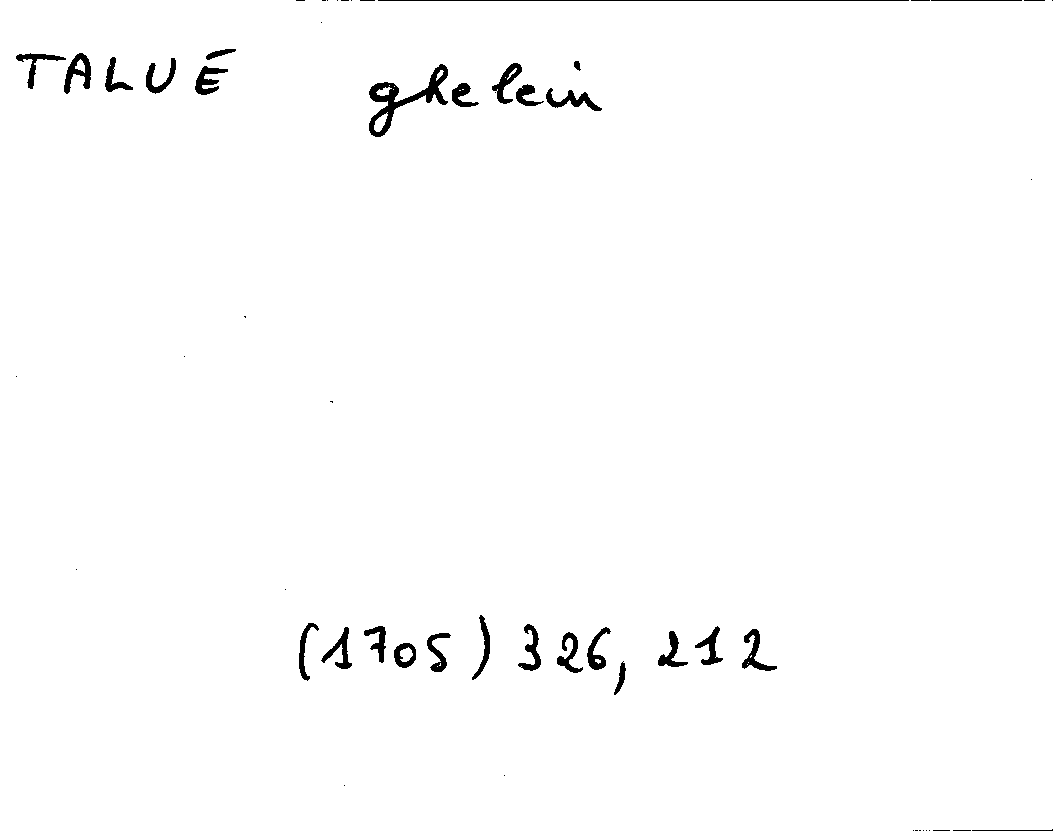 TALUÉ ghelein
(1705) 326, 212